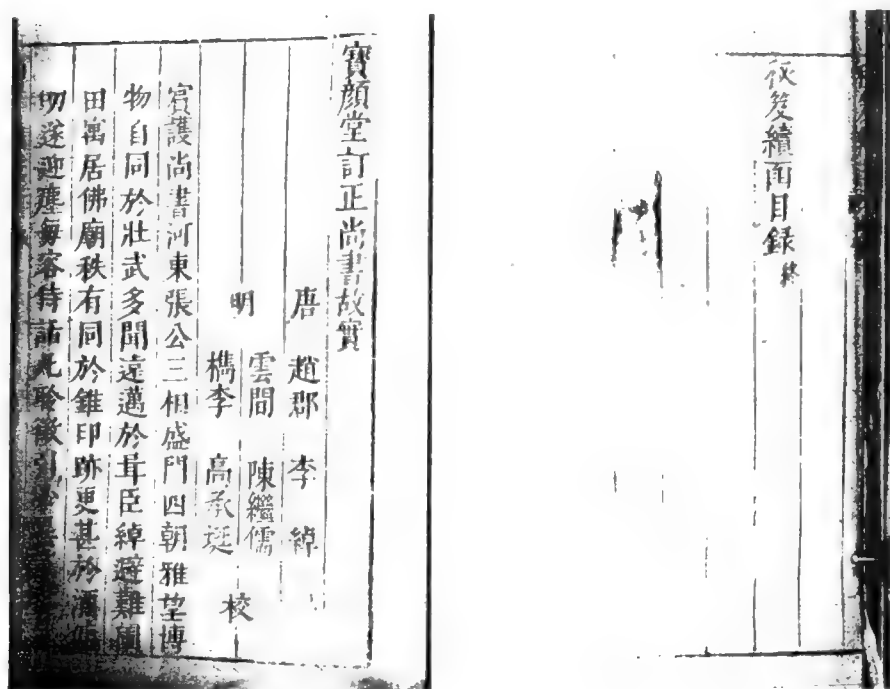 笈續函目錄終
寶顏堂訂正尚書故實
唐 趙郡 李綽
明 雲間 陳繼儒
檇李 高承埏 校
賓護尚書河東張公三相盛門四朝雅望博
物自同於壯武多聞遠邁於咠臣綽避難圃
田寓居佛廟秩有同於錐印跡更甚於酒
切遂迎塵每容侍話凡聆徵引